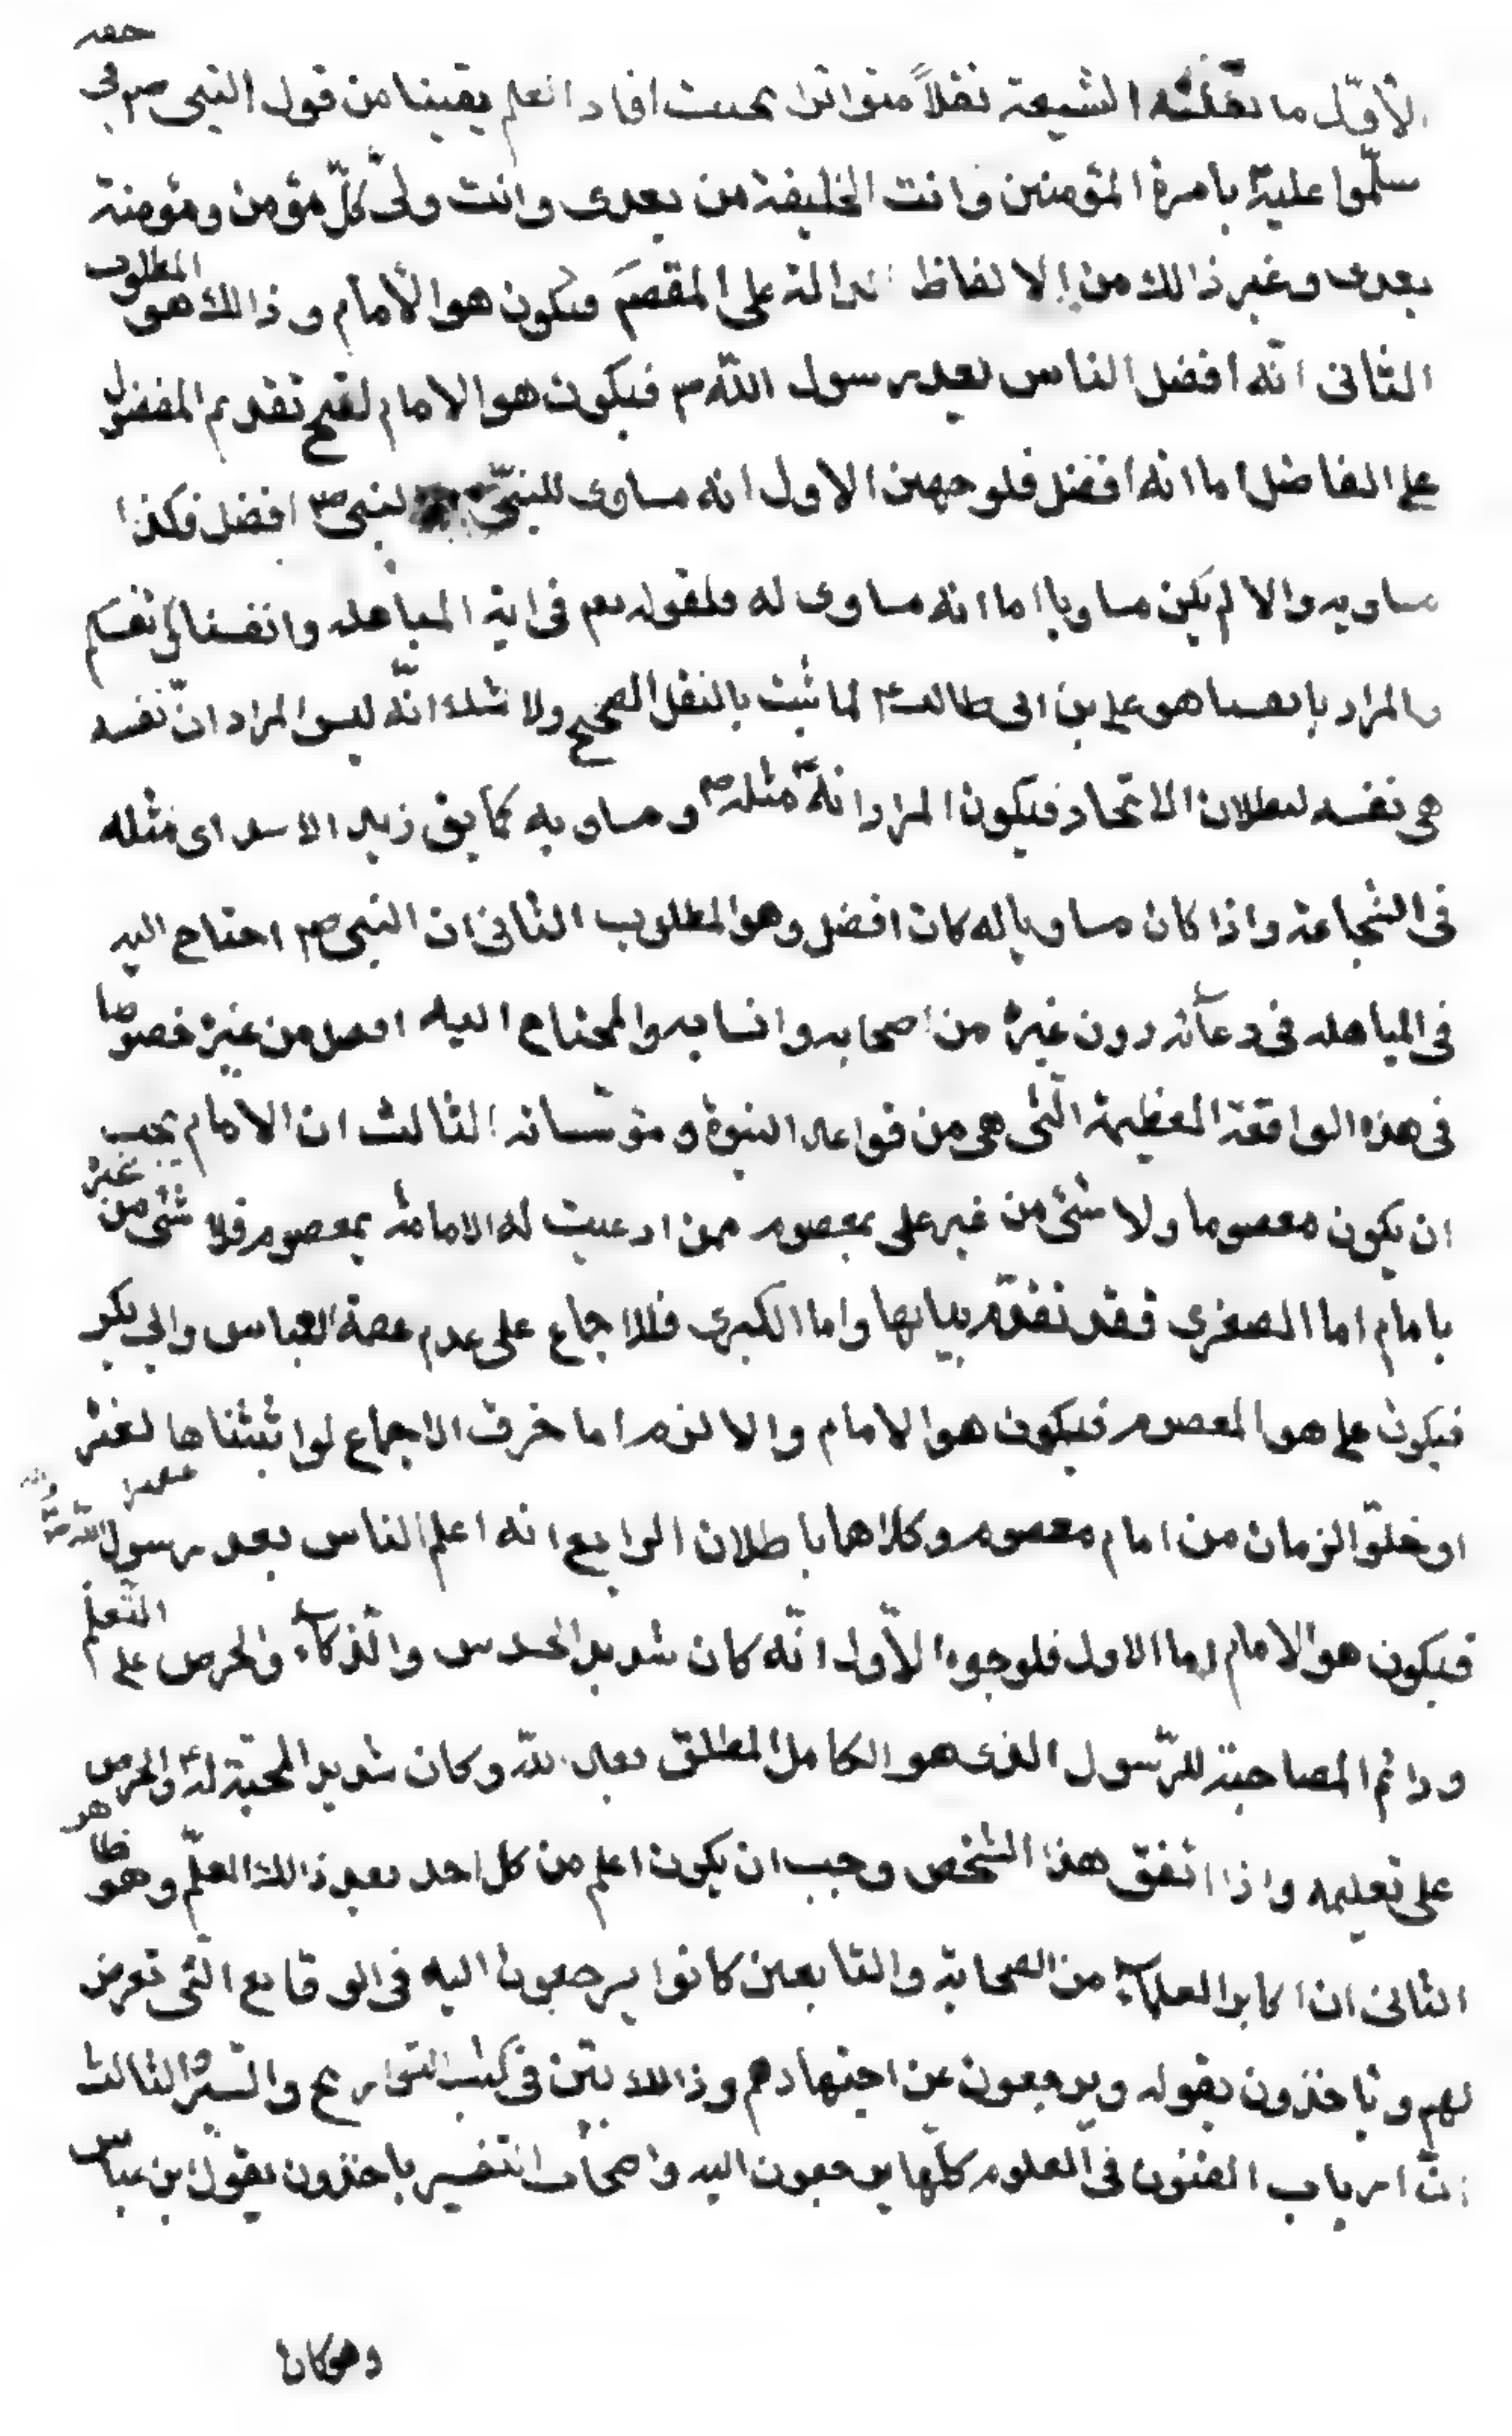 الأوّل ما نقلته الشيعة نقلاً متواترا بحيث افاد العلم يقينا من قول النبى ص فى حقه
سلّموا عليه بامرة المؤمنين وانت الخليفة من بعدى وانت ولىّ كلّ مؤمن ومؤمنة
بعدى وغير ذالك من الالفاظ الدالة على المقصم فيكون هو الأمام وذالك هو المطلوب
الثانى انّه افضل الناس بعد رسول اللّه ص فيكون هو الامام لقبح تقديم المفضول
على الفاضل اما انه افضل فلوجهين الاول انه مساوى للنبىّ لنبى ص افضل فكذا
مساويه والا لم يكن مساويا اما انه مساوى له فلقوله تعم فى اية المباهله وانفسنا وانفسكم
والمراد بانفسنا هو على بن ابى طالب ع لما ثبت بالنقل الصحيح ولا شك انّه ليس المراد انّ نفسه
هى نفسه لبطلان الاتحاد فيكون المراد انه مثله ص ومساويه كما يق زيد الاسد اى مثله
فى الشجاعة واذا كان مساويا له كان افضل وهو المطلوب الثانى ان النبى ص احتاج اليه
فى المباهله فى دعائه دون غيره من اصحابه وانسابه والمحتاج اليه افضل من غيره خصوصا
فى هذه الواقعة العظيمة الّتى هى من قواعد النبوة و مؤسساته الثالث ان الامام يجب
ان يكون معصوما ولا شئ من غير على بمعصوم ممن ادعيت له الامامة بمعصوم فلا شئ من غيره
بامام اما الصغرى فقد تقدّم بيانها واما الكبرى فللاجماع على عدم عصمة العباس وابى بكر
فيكون على هو المعصوم فيكون هو الامام والا لزم اما خرق الاجماع لو اثبتناها لغيره
او خلوّ الزمان من امام معصوم وكلاهما باطلان الرابع انه اعلم الناس بعد رسول اللّه ص
فيكون هو الامام اما الاول فلوجوه الأوّل انّه كان شديد الحدس والذّكاء والحرص على التّعلّم
ودائم المصاحبة للرّسول الذى هو الكامل المطلق بعد اللّه وكان شديد المحبّة له والحرص
على تعليمه واذا اتفق هذا الشخص وجب ان يكون اعلم من كل احد بعد ذالك المعلّم وهو ظاهر
الثانى ان اكابر العلماء من الصحابة والتابعين كانوا يرجعون اليه فى الوقايع الّتى تعرض
لهم وياخذون بقوله ويرجعون عن اجتهادهم وذالك بيّن فى كتب التواريخ والسّير الثالث
انّ ارباب الفنون فى العلوم كلّها يرجعون اليه واصحاب التفسير ياخذون بقول ابن عباس
وهو كان